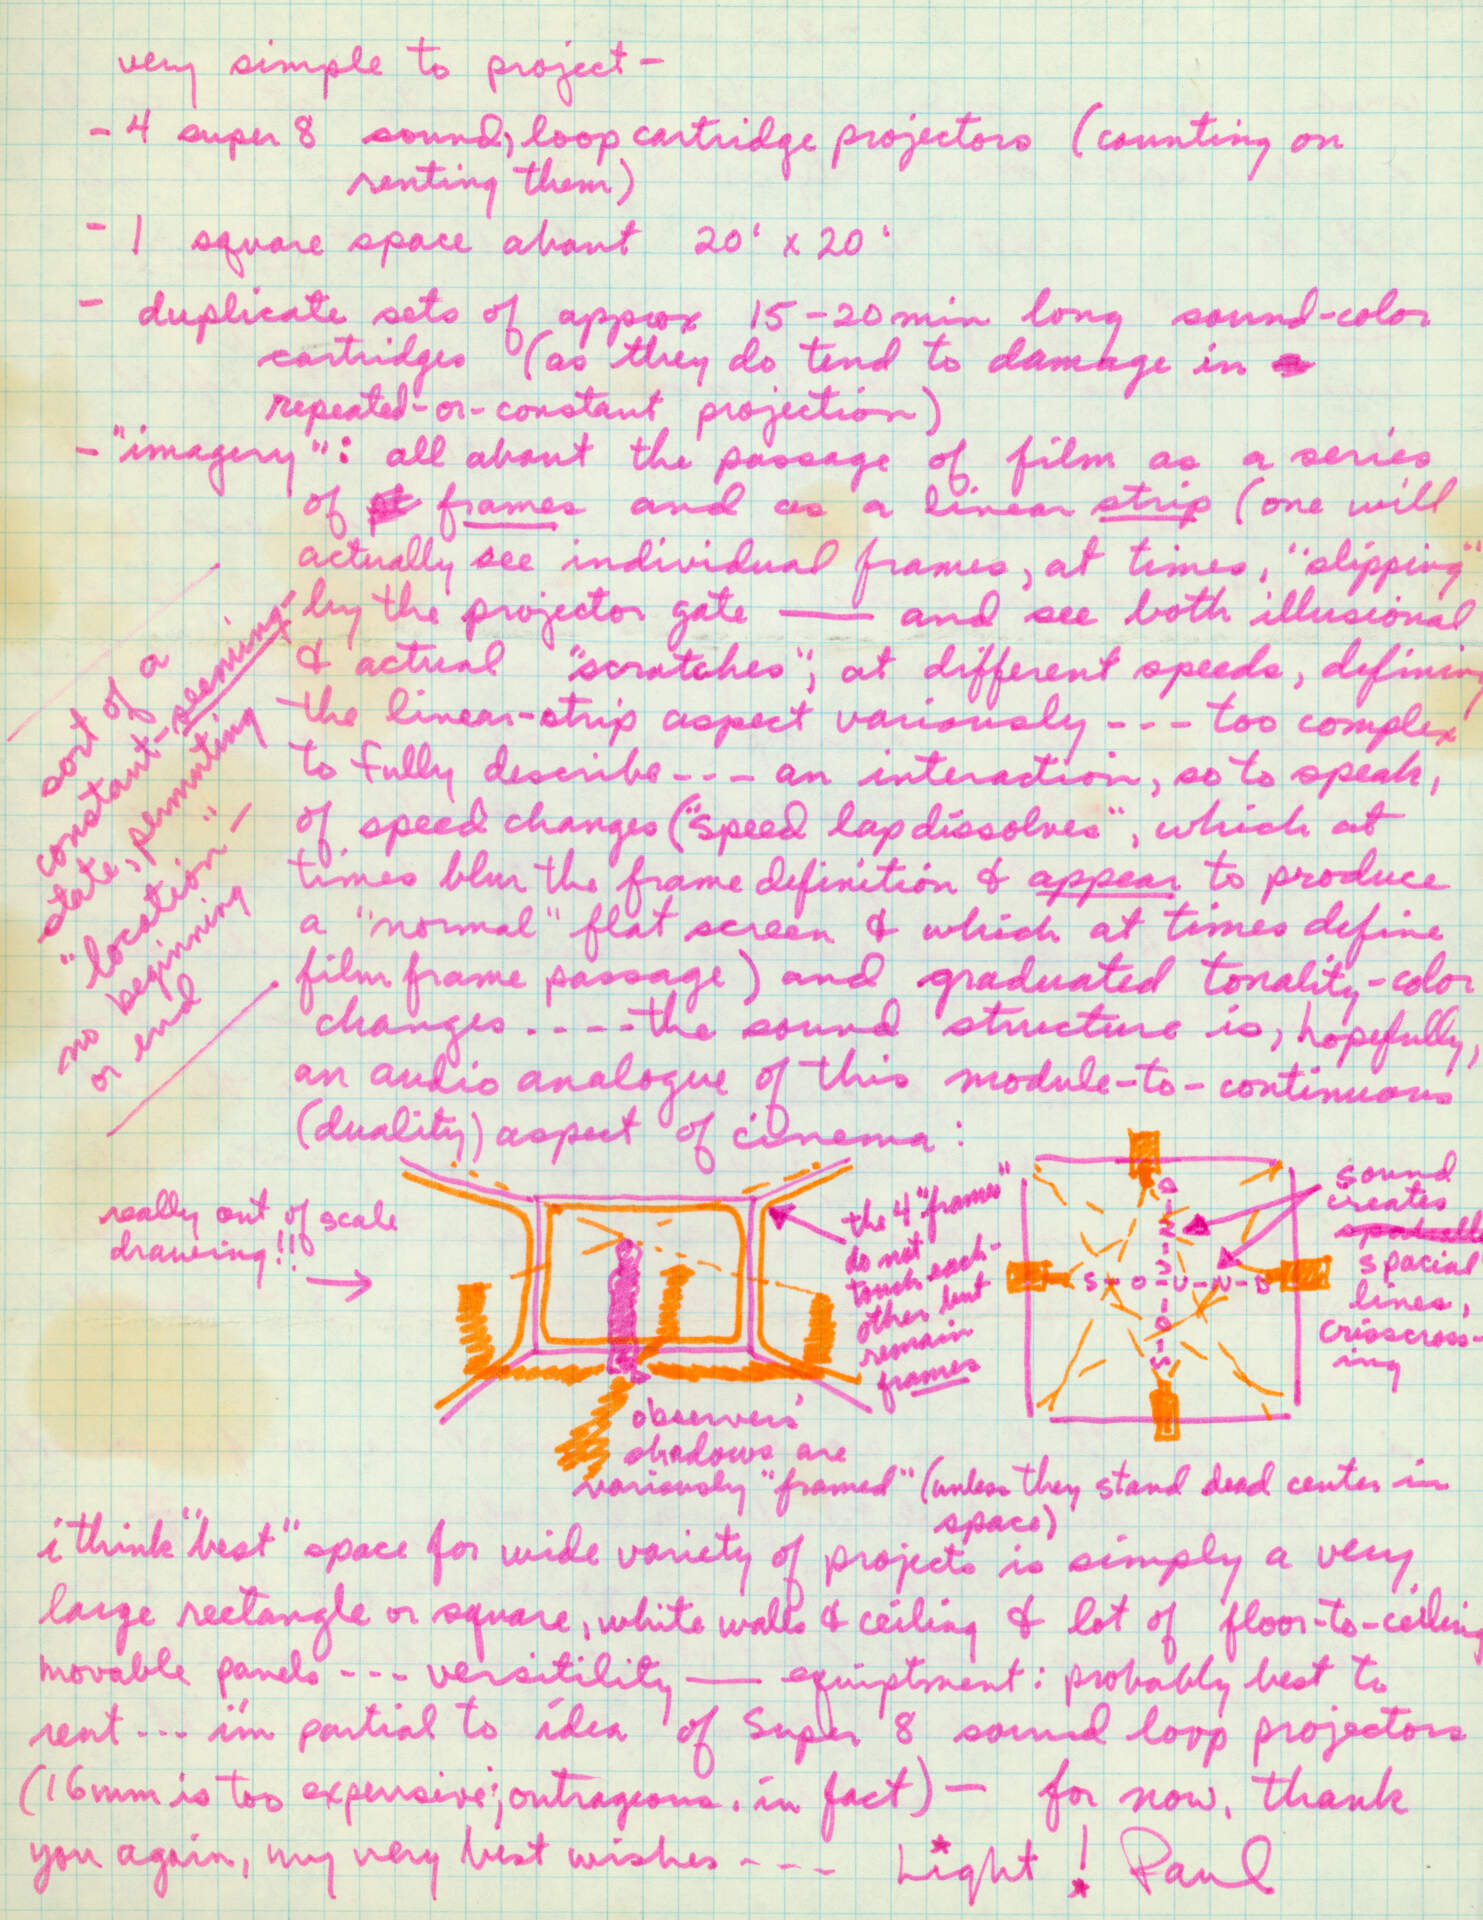 very simple to project-
- 4 super 8 sound, loop cartridge projectors (counting on
renting them)
- 1 square space about 20' x 20'
- duplicate sets of approx 15-20 min long sound-color
cartridges (as they do tend to damage in
repeated-or-constant projection)
- "imagery": all about the passage of film as a series
of frames and as a linear strip (one will
actually see individual frames, at times, "slipping"
by the projector gate — and see both illusional
& actual "scratches", at different speeds, defining
the linear-strip aspect variously --- too complex
to fully describe --- an interaction, so to speak,
of speed changes ("speed lap dissolves", which at
times blur the frame definition & appear to produce
a "normal" flat screen & which at times define
film frame passage) and graduated tonality-color
changes ----- the sound structure is, hopefully,
an audio analogue of this module-to-continuous
(duality) aspect of cinema:
sort of a
constant-seeming-
state, permitting
"location"-
no beginning
or end
really out of scale
drawing!!
the 4 "frames"
do not
touch each-
other but
remain
frames
S-O-U-N-D
S-O-U-N-D
sound
creates
spacial
lines,
crisscross-
ing
observers'
shadows are
variously "framed" (unless they stand dead center in
space)
i think "best" space for wide variety of projects is simply a very
large rectangle or square, white walls & ceiling & lot of floor-to-ceiling
movable panels --- versitility — equiptment: probably best to
rent --- i'm partial to idea of Super 8 sound loop projectors
(16mm is too expensive; outrageous, in fact) — for now, thank
you again, my very best wishes ---- Light! Paul